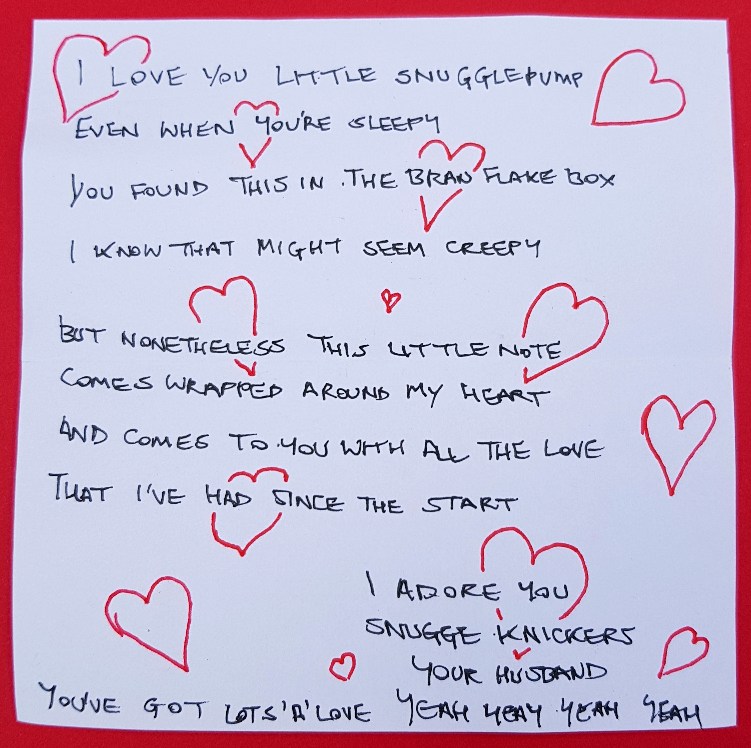 I LOVE YOU LITTLE SNUGGLEPUMP
EVEN WHEN YOU'RE SLEEPY
YOU FOUND THIS IN THE BRAN FLAKE BOX
I KNOW THAT MIGHT SEEM CREEPY
BUT NONETHELESS THIS LITTLE NOTE
COMES WRAPPED AROUND MY HEART
AND COMES TO YOU WITH ALL THE LOVE
THAT I'VE HAD SINCE THE START
I ADORE YOU
SNUGGE KNICKERS
YOUR HUSBAND
YOU'VE GOT LOTS 'A' LOVE YEAH YEAY YEAH YEAH